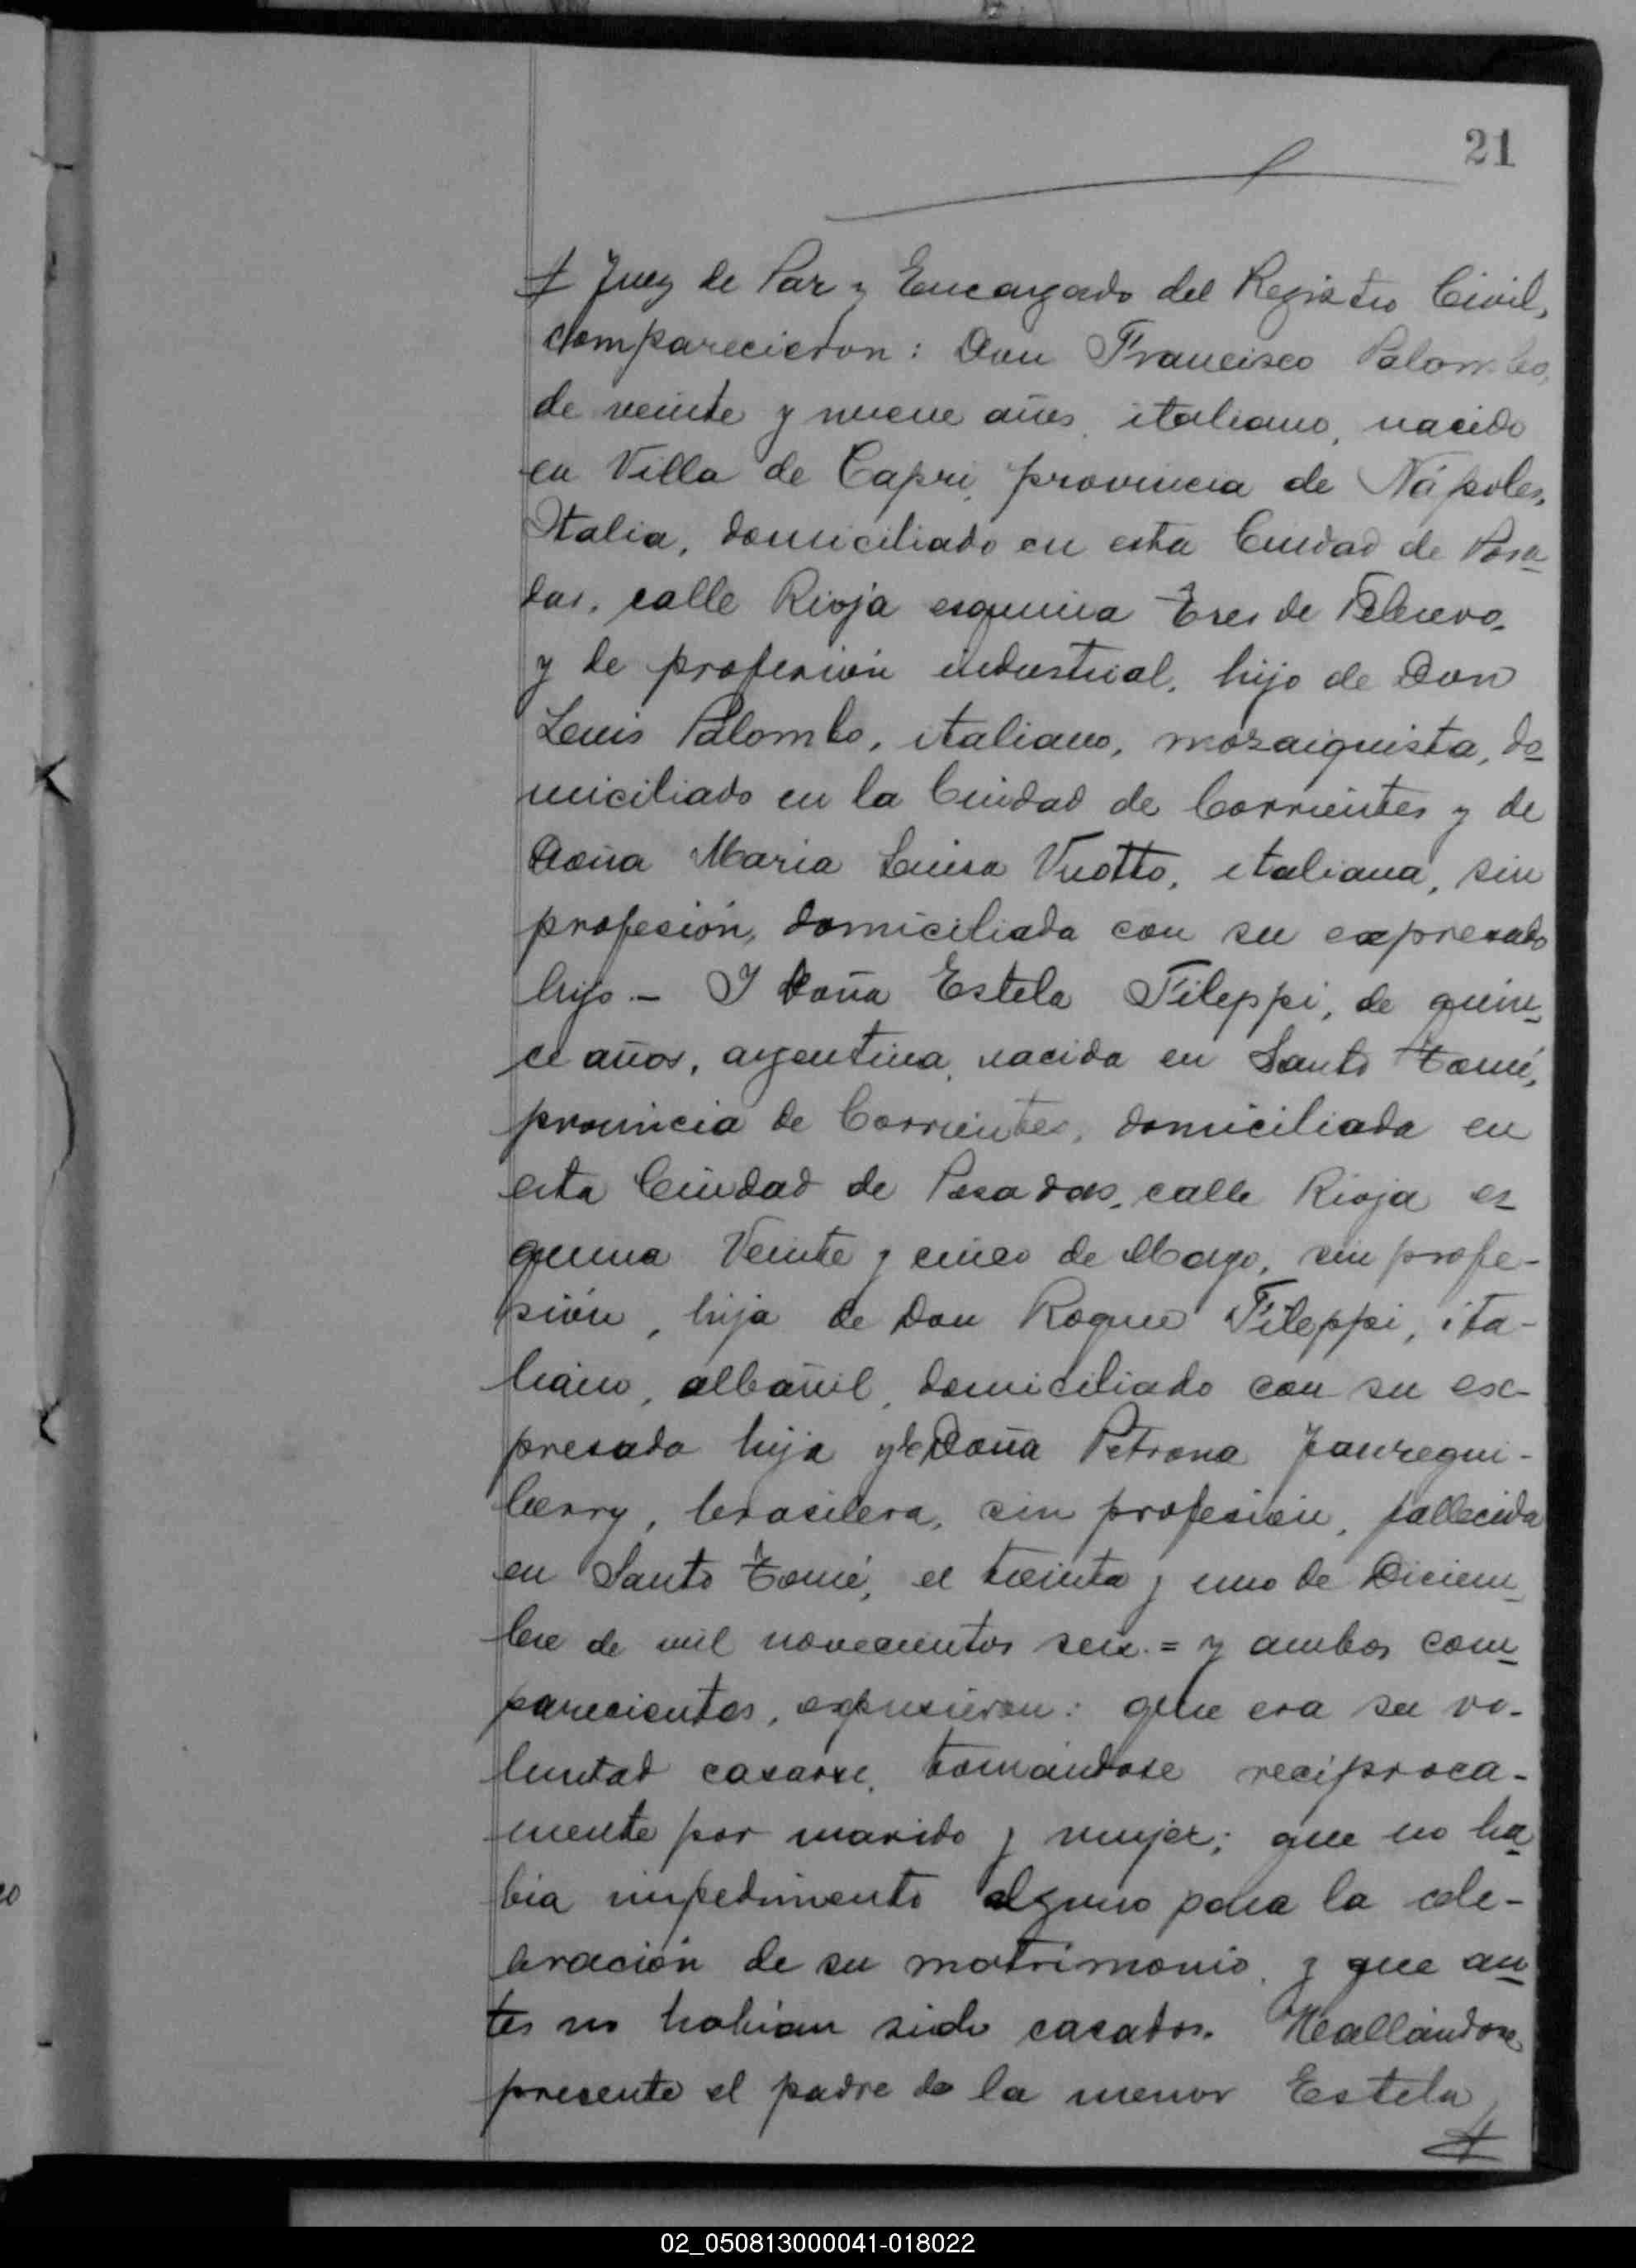 21
Juez de Paz y Encargado del Registro Civil,
comparecieron: Don Francisco Palombo,
de veinte y nueve años, italiano, nacido
en Villa de Capri, provincia de Nápoles,
Italia, domiciliado en esta Ciudad de Posa
das, calle Rioja esquina Tres de Febrero,
y de profesión industrial, hijo de Don
Luis Palombo, italiano, mozaiquista, do
miciliado en la Ciudad de Corrientes y de
Doña Maria Luisa Vuotto, italiana, sin
profesión, domiciliada con su expresado
hijo.- Y Doña Estela Fileppi, de quin
ce años, argentina, nacida en Santo Tomé,
provincia de Corrientes, domiciliada en
esta Ciudad de Posadas, calle Rioja es
quina Veinte y cinco de Mayo, sin profe-
sión, hija de Don Roque Fileppi, ita-
liano, albañil, domiciliado con su ex-
presada hija y de Doña Petrona Jauregui-
berry, brasilera, sin profesión, fallecida
en Santo Tomé, el treinta y uno de Diciem
bre de mil novecientos seis.= y ambos com
parecientes, expusieron: que era su vo-
luntad casarse, tomándose recíproca-
mente por marido y mujer; que no ha
bia impedimento alguno para la cele-
bración de su matrimonio, y que an
tes no habian sido casados. Hallándose
presente el padre de la menor Estela
02_050813000041-018022